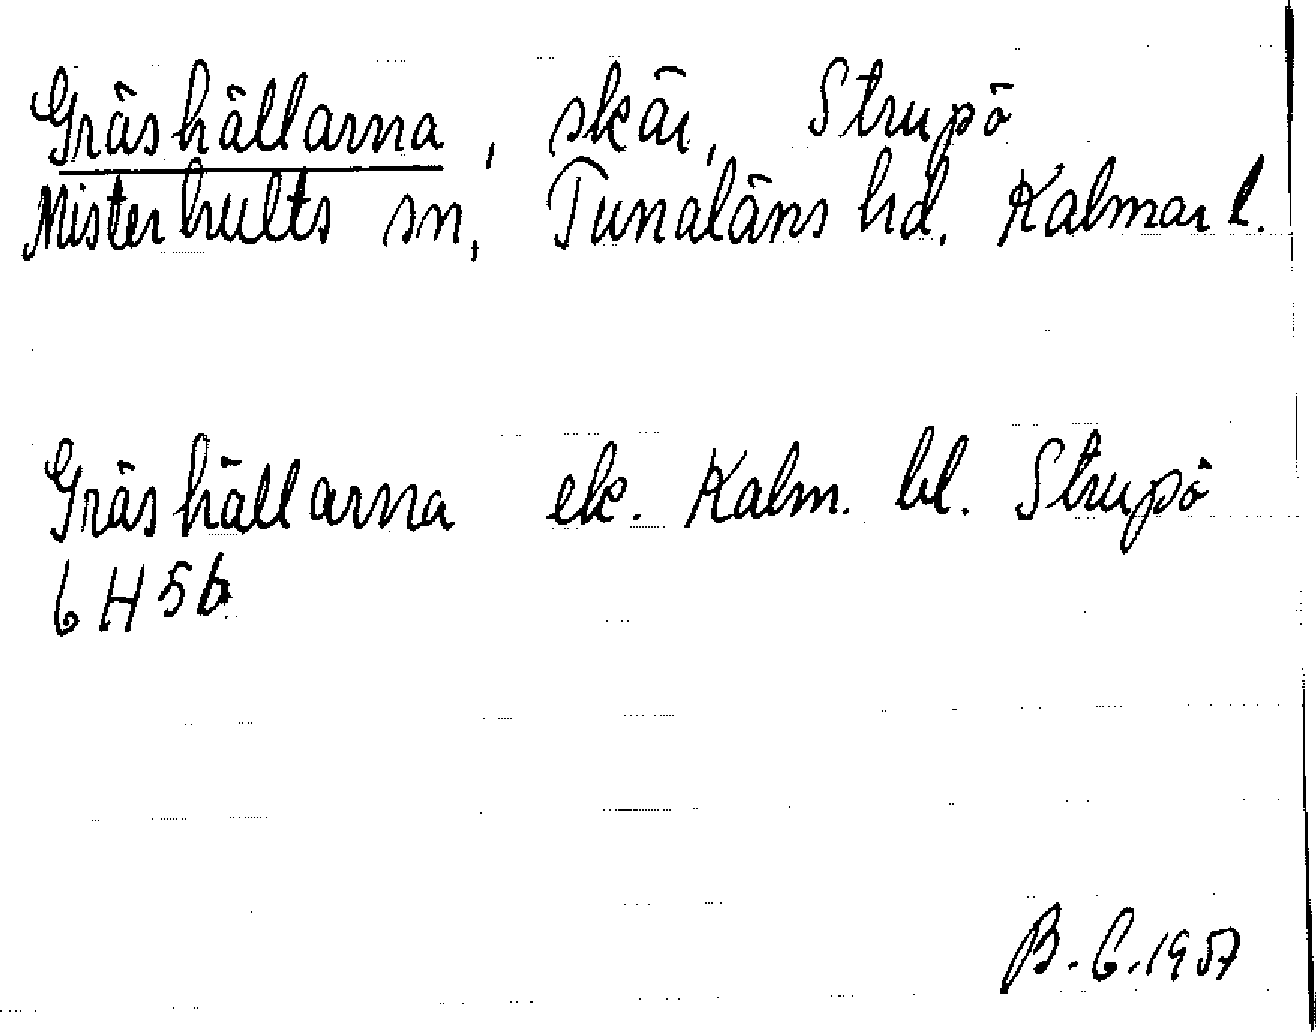 Gräshällarna, skär, Strupö
Misterhults sn, Tunaläns hd. Kalmar l.
Gräshällarna ek. Kalm. bl. Strupö
6 H 5 b
B. G. 1957